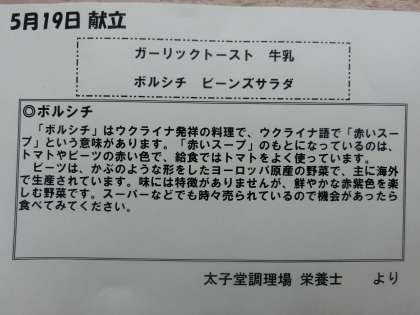 5月19日 献立
ガーリックトースト　牛乳
ボルシチ　ビーンズサラダ
◎ボルシチ
「ボルシチ」はウクライナ発祥の料理で、ウクライナ語で「赤いスー
プ」という意味があります。「赤いスープ」のもとになっているのは、
トマトやビーツの赤い色で、給食ではトマトをよく使っています。
ビーツは、かぶのような形をしたヨーロッパ原産の野菜で、主に海外
で生産されています。味には特徴がありませんが、鮮やかな赤紫色を楽
しむ野菜です。スーパーなどでも時々売られているので機会があったら
食べてみてください。
太子堂調理場 栄養士　　より